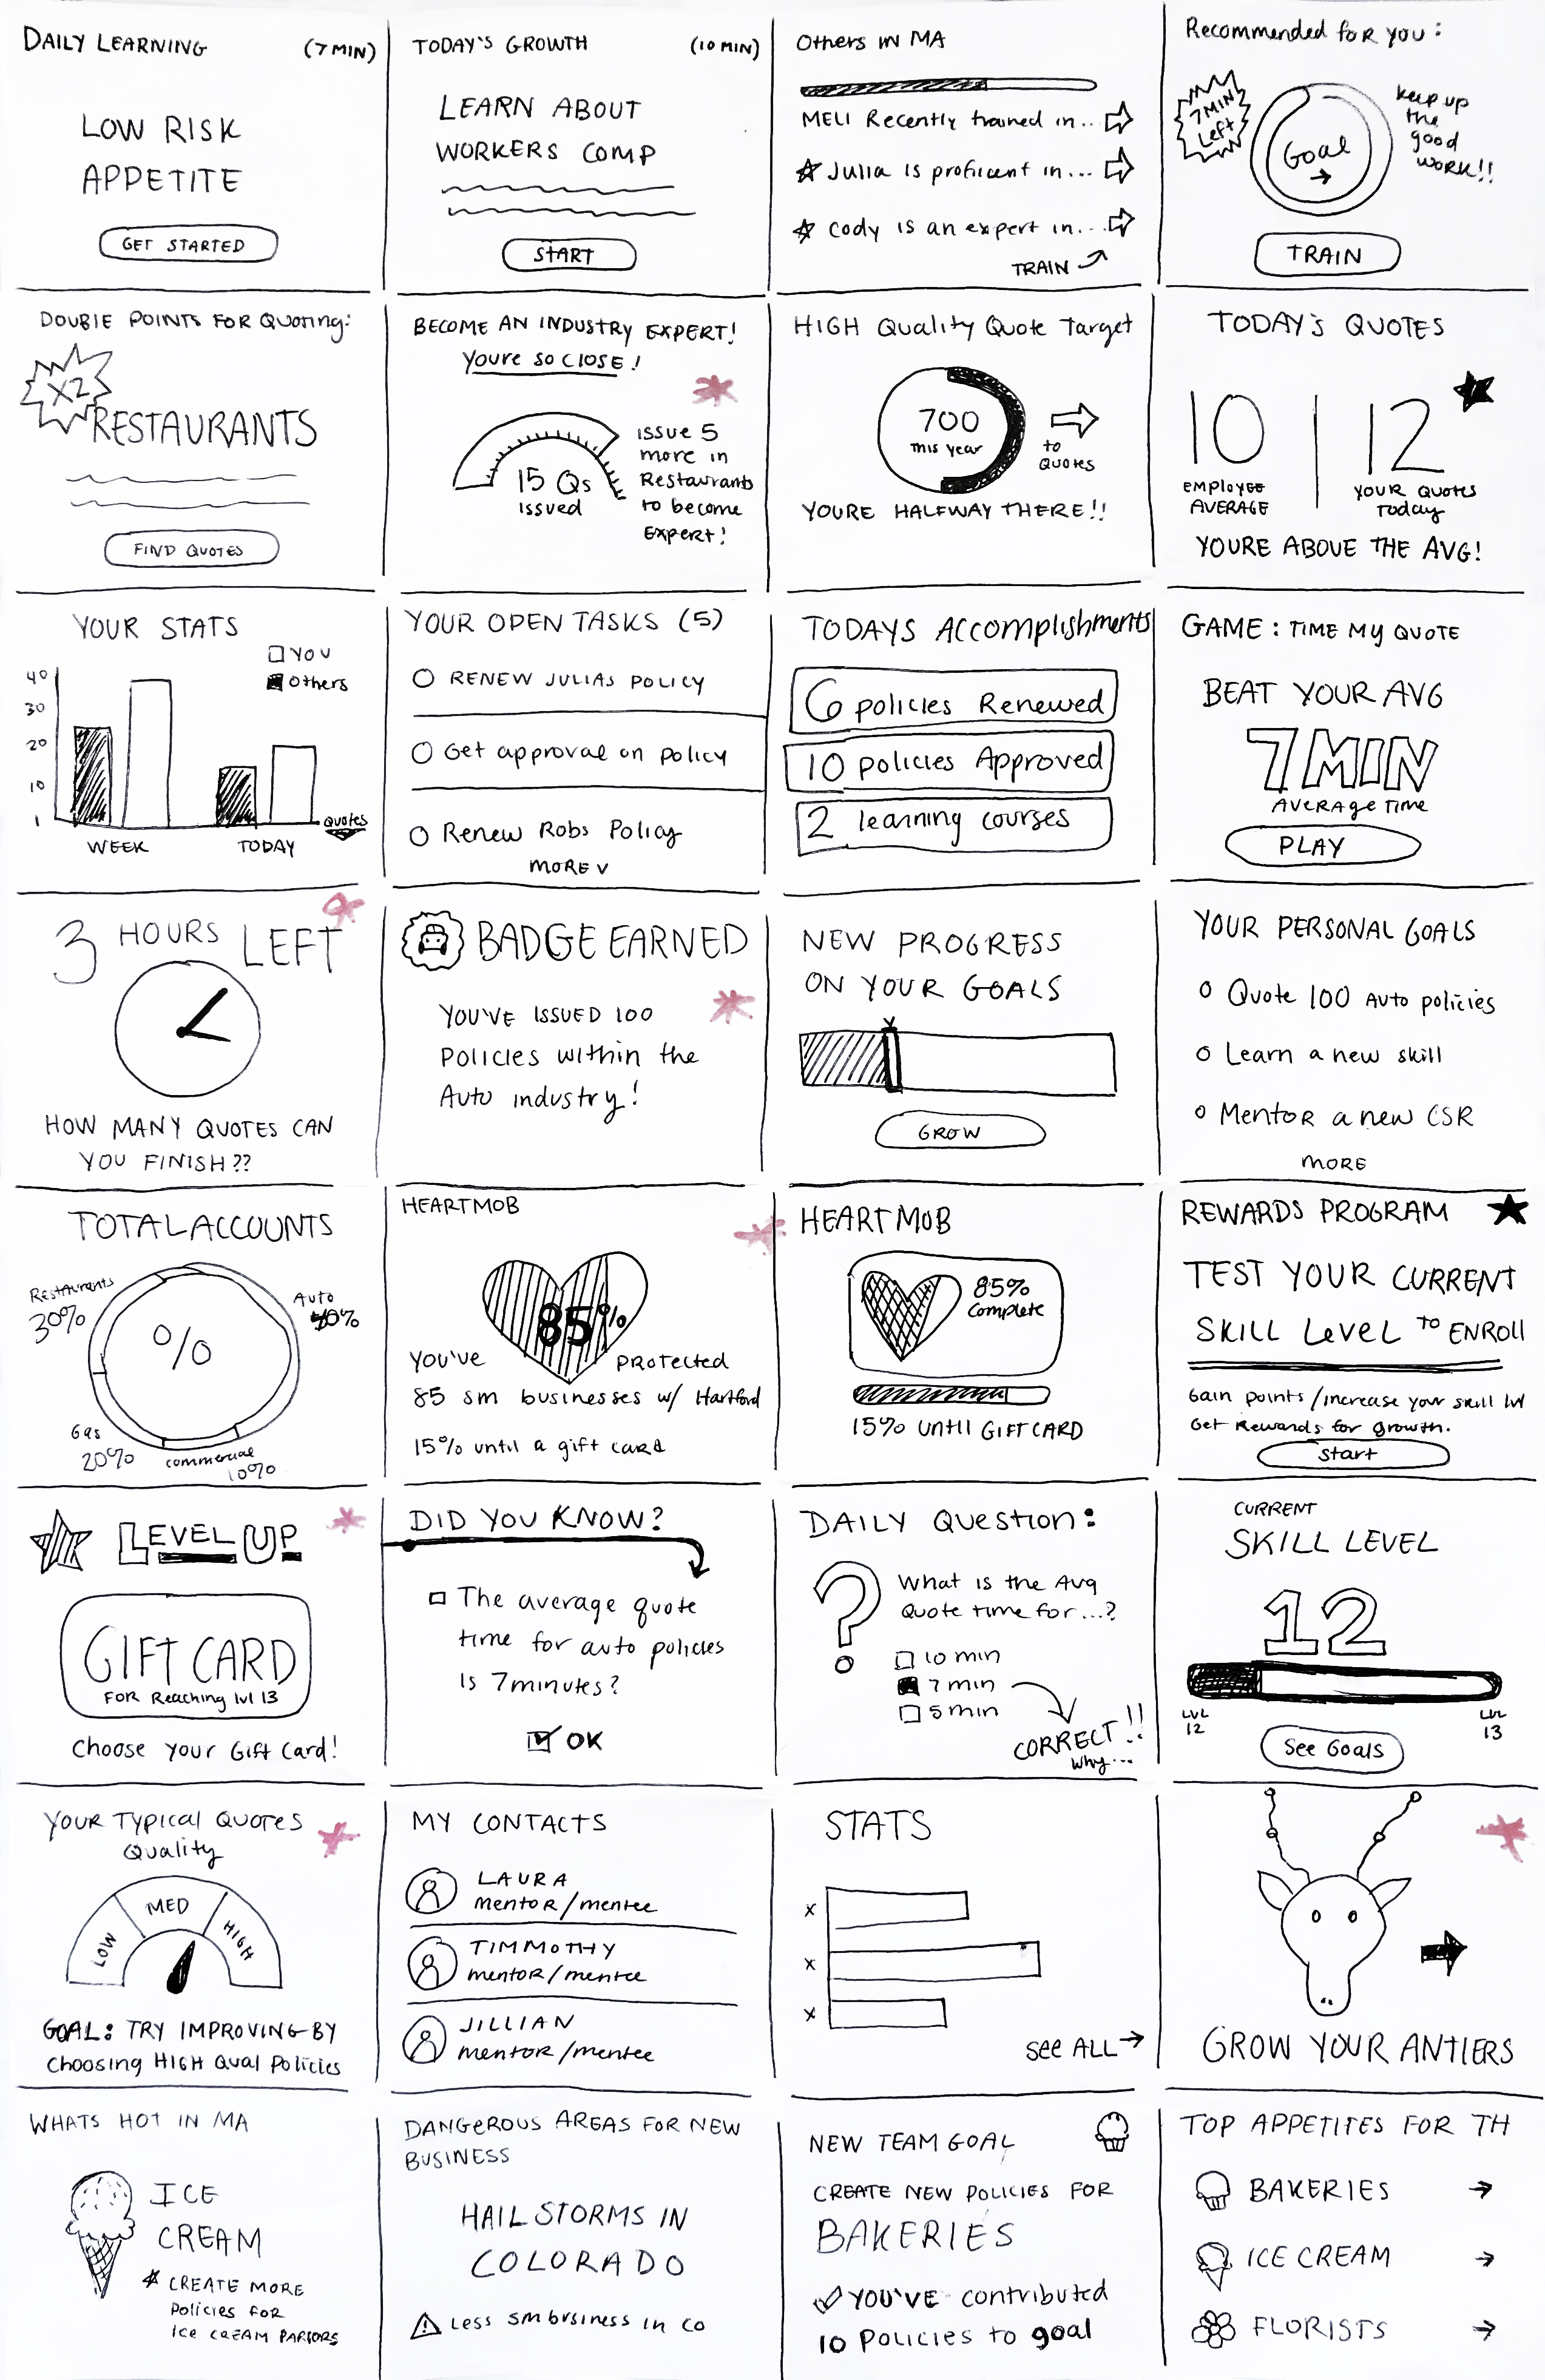 DAILY LEARNING (7 MIN)
LOW RISK
APPETITE
GET STARTED
TODAY'S GROWTH (10 MIN)
LEARN ABOUT
WORKERS COMP
START
Others IN MA
MELI Recently trained in...
Julia is proficent in...
Cody is an expert in...
TRAIN
Recommended for you:
7 MIN
Left
GOAL
keep up
the
good
work!!
TRAIN
DOUBLE POINTS FOR Quoting:
X2
RESTAURANTS
FIND QUOTES
BECOME AN INDUSTRY EXPERT!
Youre SO CLOSE!
15 Qs
issued
issue 5
more in
Restaurants
to become
Expert!
HIGH Quality Quote Target
700
This year
to
Quotes
YOURE HALFWAY THERE!!
TODAY'S QUOTES
10
EMPLOYEE
AVERAGE
12
YOUR QUOTES
Today
YOURE ABOVE THE AVG!
YOUR STATS
YOU
Others
40
30
20
10
1
Quotes
WEEK TODAY
YOUR OPEN TASKS (5)
RENEW JULIAS POLICY
Get approval on policy
Renew Robs Policy
MORE
TODAYS Accomplishments
6 policies Renewed
10 policies Approved
2 learning courses
GAME: TIME MY QUOTE
BEAT YOUR AVG
7 MIN
AVERAGE TIME
PLAY
3 HOURS LEFT
HOW MANY QUOTES CAN
YOU FINISH??
BADGE EARNED
YOU'VE ISSUED 100
Policies within the
Auto industry!
NEW PROGRESS
ON YOUR GOALS
GROW
YOUR PERSONAL GOALS
Quote 100 Auto policies
Learn a new skill
Mentor a new CSR
MORE
TOTAL ACCOUNTS
Restaurants
30%
Auto
40%
%
Gas
20%
commercial
10%
HEARTMOB
85%
YOU'VE PROTECTED
85 sm businesses w/ Hartford
15% until a gift card
HEARTMOB
85%
Complete
15% UNTIL GIFT CARD
REWARDS PROGRAM
TEST YOUR CURRENT
SKILL LEVEL TO ENROLL
Gain points/increase your skill lvl
Get Rewards for growth.
Start
LEVEL UP
GIFT CARD
FOR Reaching lvl 13
Choose Your Gift Card!
DID YOU KNOW?
The average quote
time for auto policies
is 7 minutes?
OK
DAILY Question:
?
What is the Avg
Quote time for...?
10 min
7 min
5 min
CORRECT!!
Why...
CURRENT
SKILL LEVEL
12
LVL
12
LVL
13
See Goals
YOUR TYPICAL QUOTES
Quality
LOW
MED
HIGH
GOAL: TRY IMPROVING BY
Choosing HIGH Qual Policies
MY CONTACTS
LAURA
mentor/mentee
TIMMOTHY
mentor/mentee
JILLIAN
mentor/mentee
STATS
x
x
x
see ALL
GROW YOUR ANTLERS
WHATS HOT IN MA
ICE
CREAM
* CREATE MORE
Policies FOR
Ice CREAM PARLORS
DANGEROUS AREAS FOR NEW
BUSINESS
HAIL STORMS IN
COLORADO
! Less sm business in CO
NEW TEAM GOAL
CREATE NEW POLICIES FOR
BAKERIES
YOU'VE contributed
10 Policies to goal
TOP APPETITES FOR TH
BAKERIES
ICE CREAM
FLORISTS